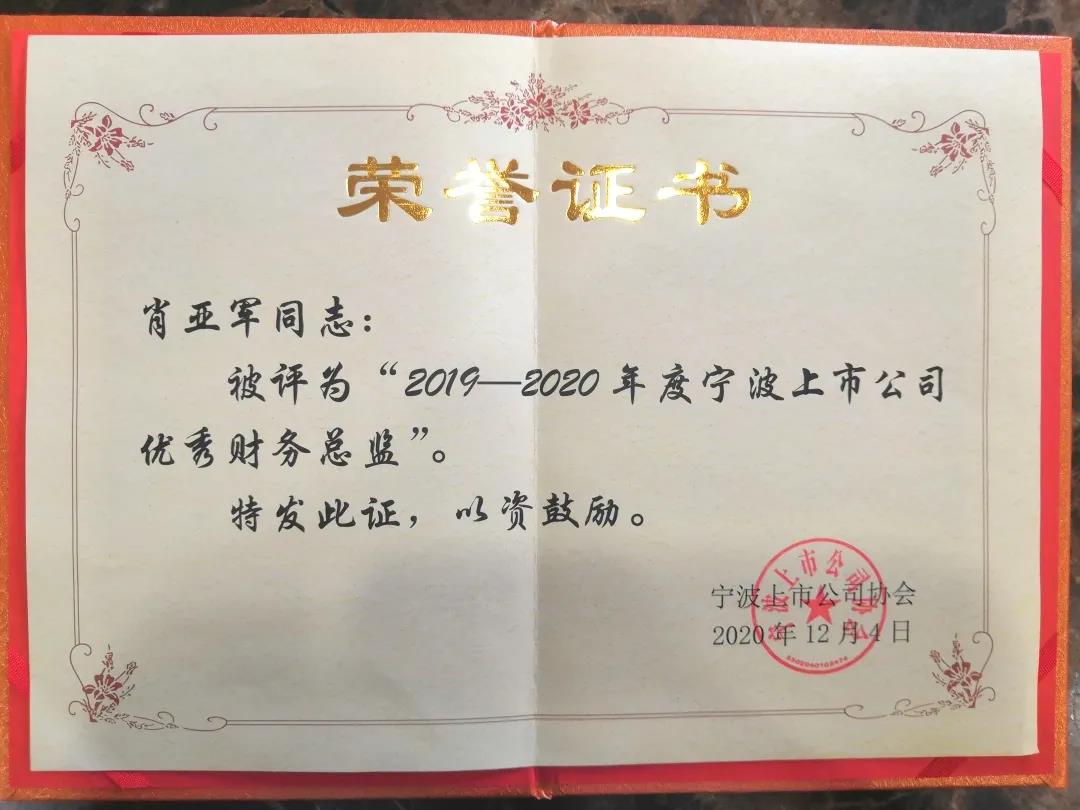 荣誉证书
肖亚军同志：
被评为“2019—2020年度宁波上市公司
优秀财务总监”。
特发此证，以资鼓励。
宁波上市公司协会
2020年12月4日
宁波上市公司协会